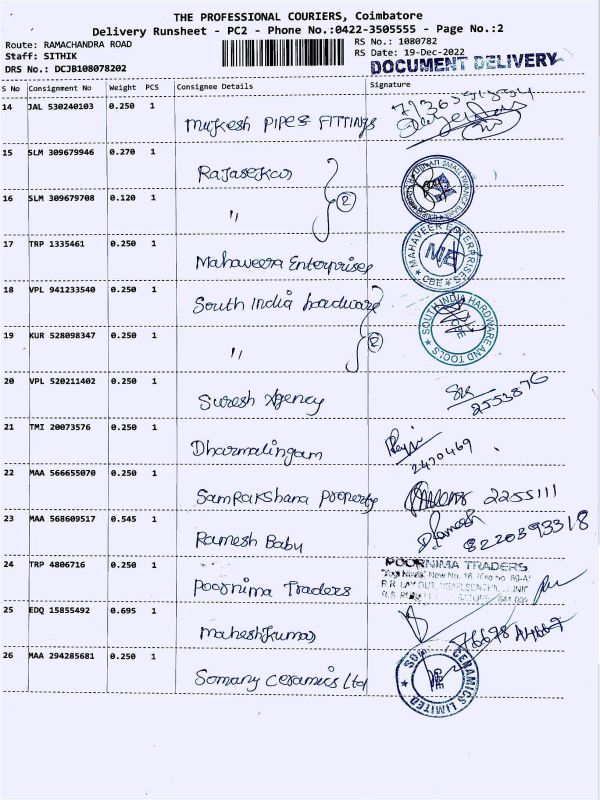 THE PROFESSIONAL COURIERS, Coimbatore
Delivery Runsheet - PC2 - Phone No.:0422-3505555 - Page No.:2
Route: RAMACHANDRA ROAD
Staff: SITHIK
DRS No.: DCJB108078202
RS No.: 1080782
RS Date: 19-Dec-2022
DOCUMENT DELIVERY
S No Consignment No Weight PCS Consignee Details Signature
14 JAL 530240103 0.250 1 Mukesh PIPES FITTINGS
15 SLM 309679946 0.270 1 Rajasekar
16 SLM 309679708 0.120 1 " 2
SMALL FINANCE
17 TRP 1335461 0.250 1 Mahaveera Enterprises
MAHAVEER ENTERPRISES
ME
CBE
18 VPL 941233540 0.250 1 South India hardware
19 KUR 528098347 0.250 1 " 2
SOUTH INDIA HARDWARE AND TOOLS
CBE
20 VPL 520211402 0.250 1 Suresh Agency
2553876
21 TMI 20073576 0.250 1 Dharmalingam
2470469
22 MAA 566655070 0.250 1 Samrakshana Property 2255111
23 MAA 568609517 0.545 1 Ramesh Babu Ramesh
8220393318
24 TRP 4806716 0.250 1 Poornima Traders
POORNIMA TRADERS
25 EDQ 15855492 0.695 1 Maheshkumar
26 MAA 294285681 0.250 1 Somany Ceramics Ltd
CERAMICS LIMITED